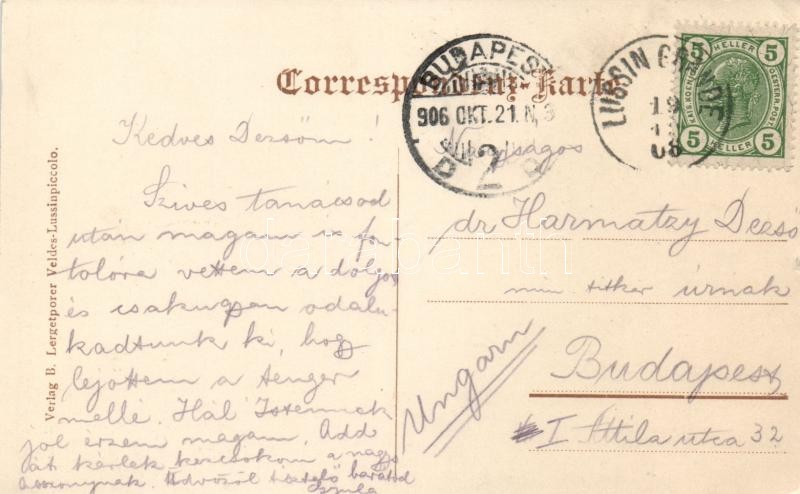 Correspondenz-Karte
BUDAPEST
906 OKT. 21. N. 3
D 2 D
LUSSIN GRANDE
19
06
5 HELLER 5
KAIS. KOENIGL.
OESTERR. POST
5 HELLER 5
Verlag B. Lergetporer Veldes-Lussinpiccolo.
Kedves Dezsőm!
Szives tanácsod
után magam is fon-
tolóra vettem a dolgot
és csakugyan odalu-
kadtunk ki, hogy
lejöttem a tenger
mellé. Hál' Istennek
jól érzem magam. Add
át kérlek kézcsókom a nagys
asszonynak. Üdvözöl tisztelő barátod
Gyula
Nagyságos
dr Harmatzy Dezső
min. titkár úrnak
Budapest
I Attila utca 32
Ungarn
darabanth